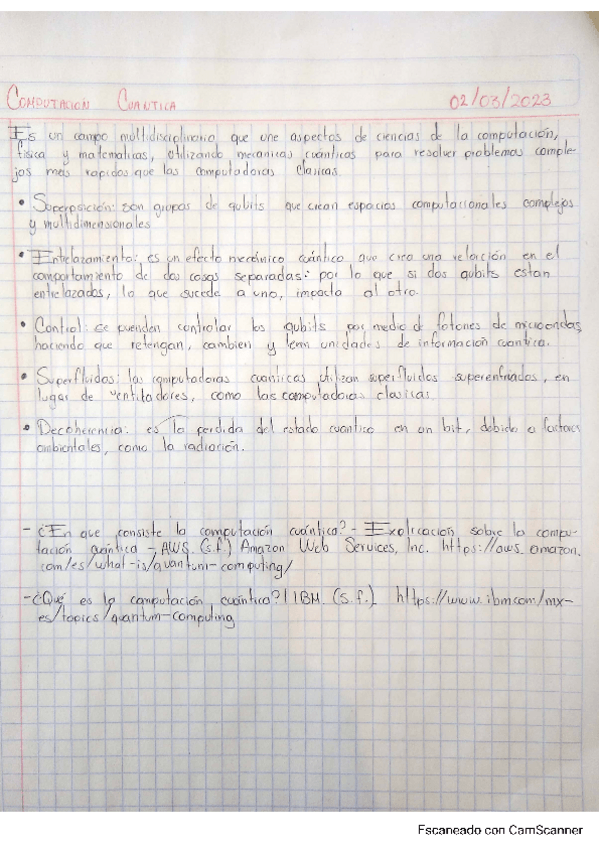 COMPUTACION CUANTICA 02/03/2023
Es un campo multidisciplinario que une aspectos de ciencias de la computación,
fisica y matematicas, utilizando mecanicas cuánticas para resolver problemas comple-
jos mas rapidos que las computadoras clasicas.
• Superposición: son grupos de qubits que crean espacios computacionales complejos
y multidimensionales
• Entrelazamiento: es un efecto mecánico cuántico que crea una relación en el
comportamiento de dos cosas separadas: por lo que si dos qubits estan
entrelazados, lo que sucede a uno, impacta al otro.
• Control: se puenden controlar los qubits por medio de fotones de microondas,
haciendo que retengan, cambien y lean unidades de información cuantica.
• Superfluidos: las computadoras cuanticas utilizan superfluidos superenfriados, en
lugar de ventiladores, como las computadoras clasicas.
• Decoherencia: es la perdida del estado cuantico en un bit, debido a factores
ambientales, como la radiación.
- ¿En que consiste la computación cuántica? - Explicación sobre la compu-
tación cuántica - AWS. (s.f.) Amazon Web Services, Inc. https://aws.amazon.
com/es/what-is/quantum-computing/
- ¿Qué es la computación cuántica? | IBM. (s.f.). https://www.ibm.com/mx-
es/topics/quantum-computing
Escaneado con CamScanner